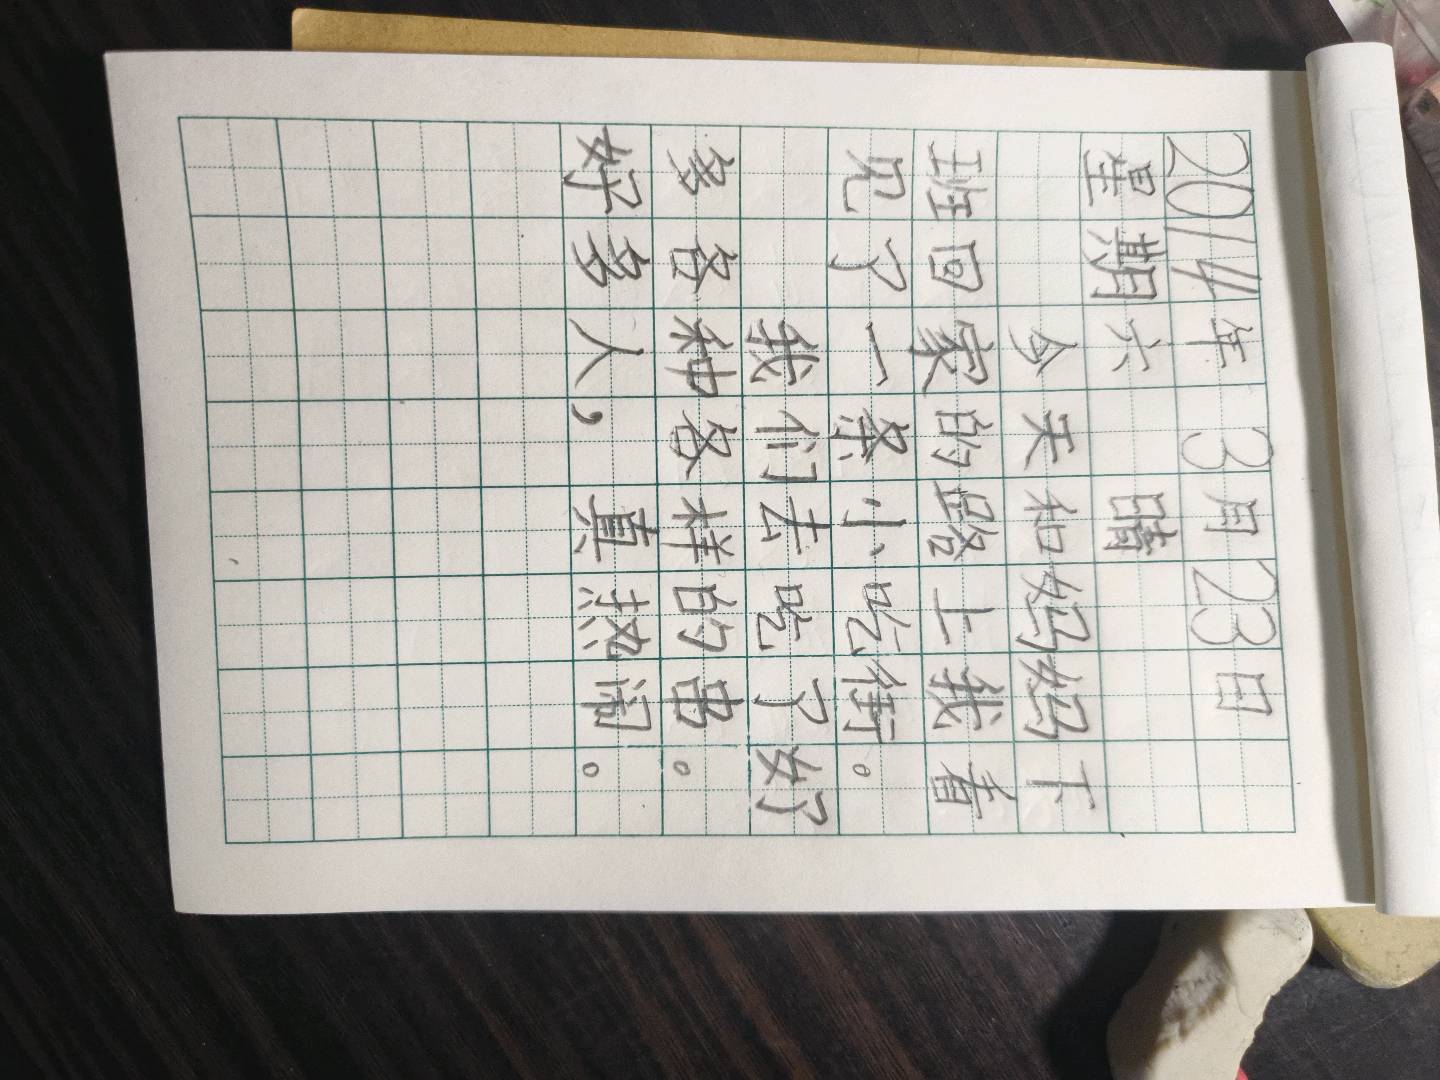 2014年3月23日
星期六 晴
今天和妈妈下
班回家的路上我看
见了一条小吃街。
我们去吃了好
多各种各样的串。
好多人，真热闹。